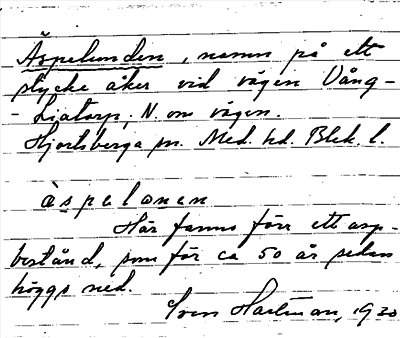 Äspelunden, namn på ett
stycke åker vid vägen Vång-
- Liatorp, N. om vägen.
Hjortsberga sn. Med. hd. Blek. l.
àspelǝnǝn
Här fanns förr ett asp-
bestånd, som för ca 50 år sedan
höggs ned.
Sven Hartman, 1930